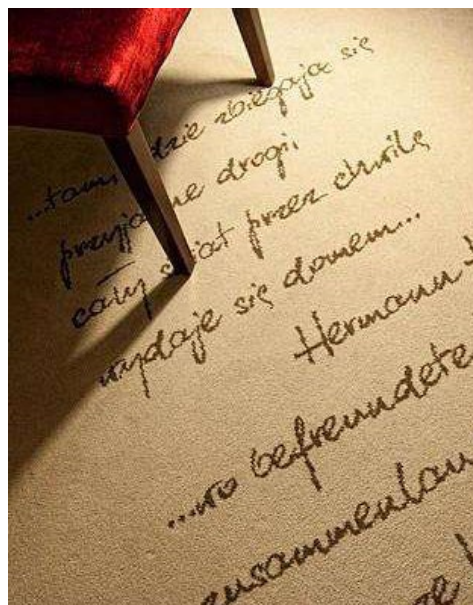 ...tam, dzie zbiegają się
przyja ne drogi,
cały s iat przez chwilę
wydaje się domem...
Hermann H
...wo befreundete
ensammenlau
ze